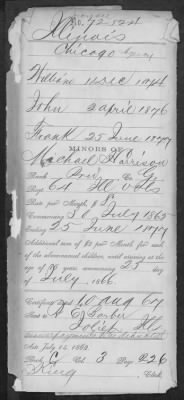 No. 72524
Illinois
Chicago Agency
William 14 Dec 1874
John 2 April 1876
Frank 25 June 1877
MINORS OF
Michael Harrison
Rank Priv Co. G
Regt 64 Ill Vols
Rate per Month, $8
Commencing 31 July 1865
Ending 25 June 1877
Additional sum of $2 per Month for each
of the above-named children, until arriving at the
age of 16 years, commencing 25 day
of July 1866.
Certificate dated 10 Aug 67
Sent to
Joliet Ill
Act July 14, 1862.
Book G Vol. 3 Page 426
King Clerk.